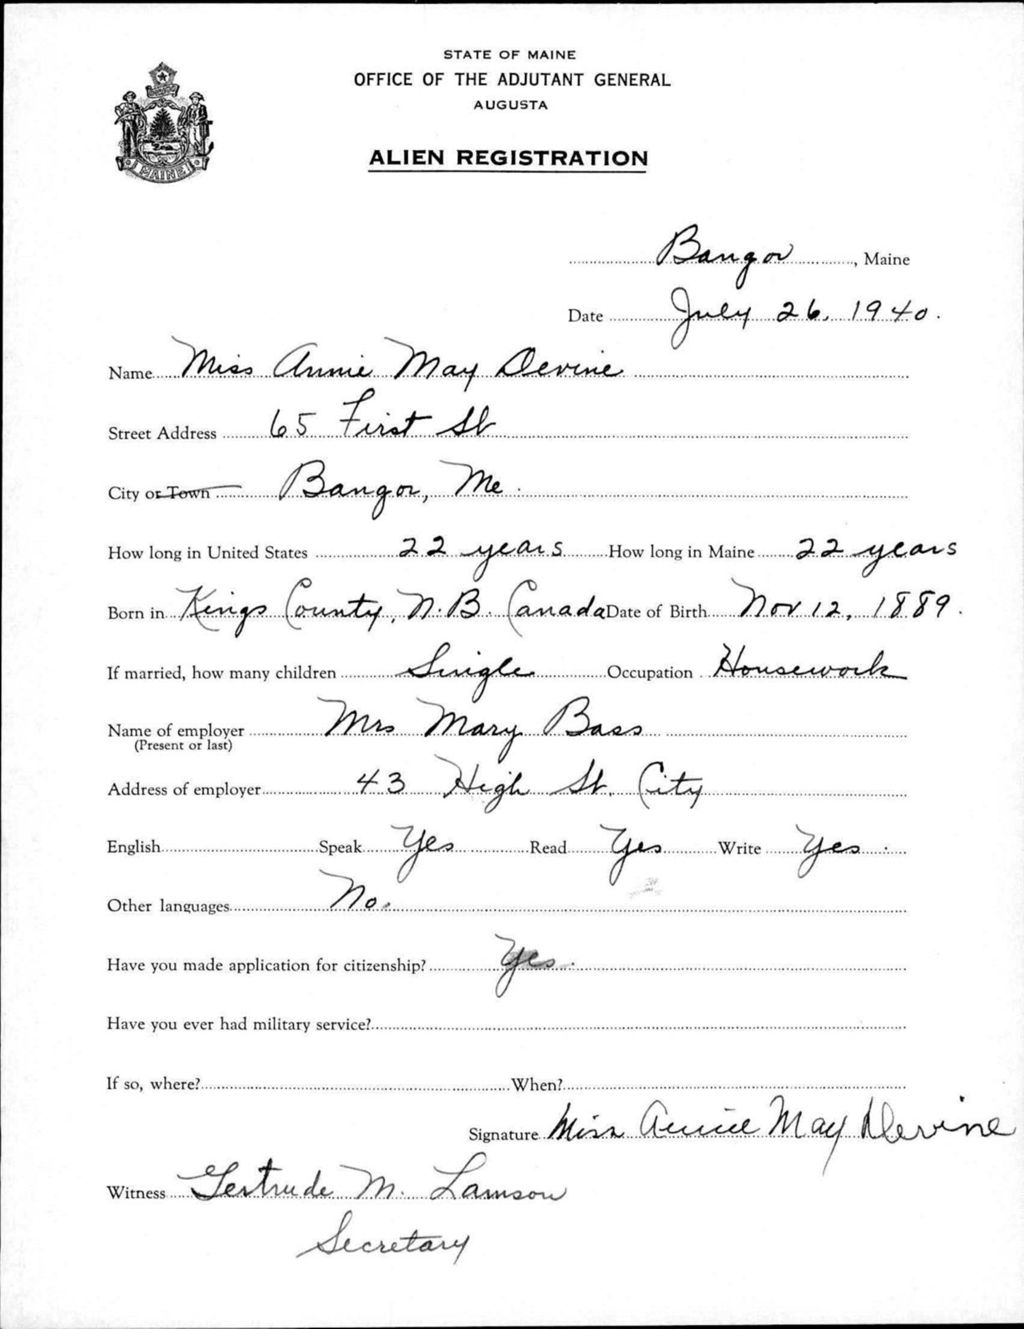 STATE OF MAINE
OFFICE OF THE ADJUTANT GENERAL
AUGUSTA
ALIEN REGISTRATION
MAINE
Bangor, Maine
Date July 26, 1940.
Name Miss Annie May Devine
Street Address 65 First St
City or Town Bangor, Me.
How long in United States 22 years How long in Maine 22 years
Born in Kings County, N.B. Canada Date of Birth Nov 12, 1889.
If married, how many children Single Occupation Housework
Name of employer Mrs Mary Bass
(Present or last)
Address of employer 43 High St. City
English Speak Yes Read Yes Write Yes.
Other languages No.
Have you made application for citizenship? Yes.
Have you ever had military service?
If so, where? When?
Signature Miss Annie May Devine
Witness Gertrude M. Lamson
Secretary